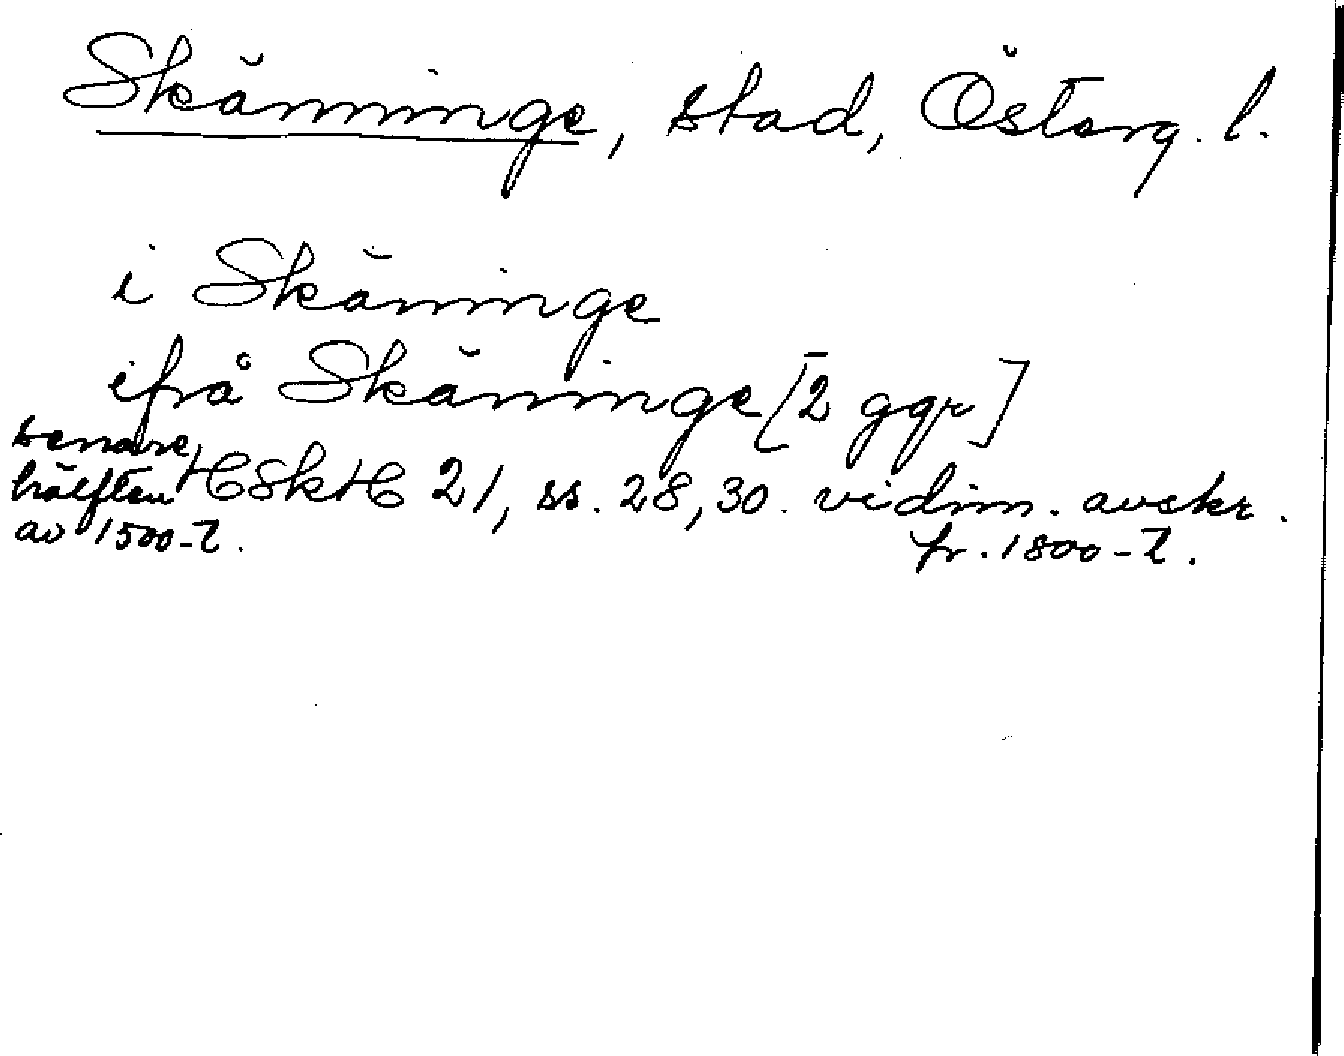 Skänninge, stad, Österg. l.
i Skäninge
ifrå Skäninge [2 ggr]
senare
hälften HSkH 21, ss. 28, 30. vidim. avskr.
av 1500-t. fr. 1800-t.